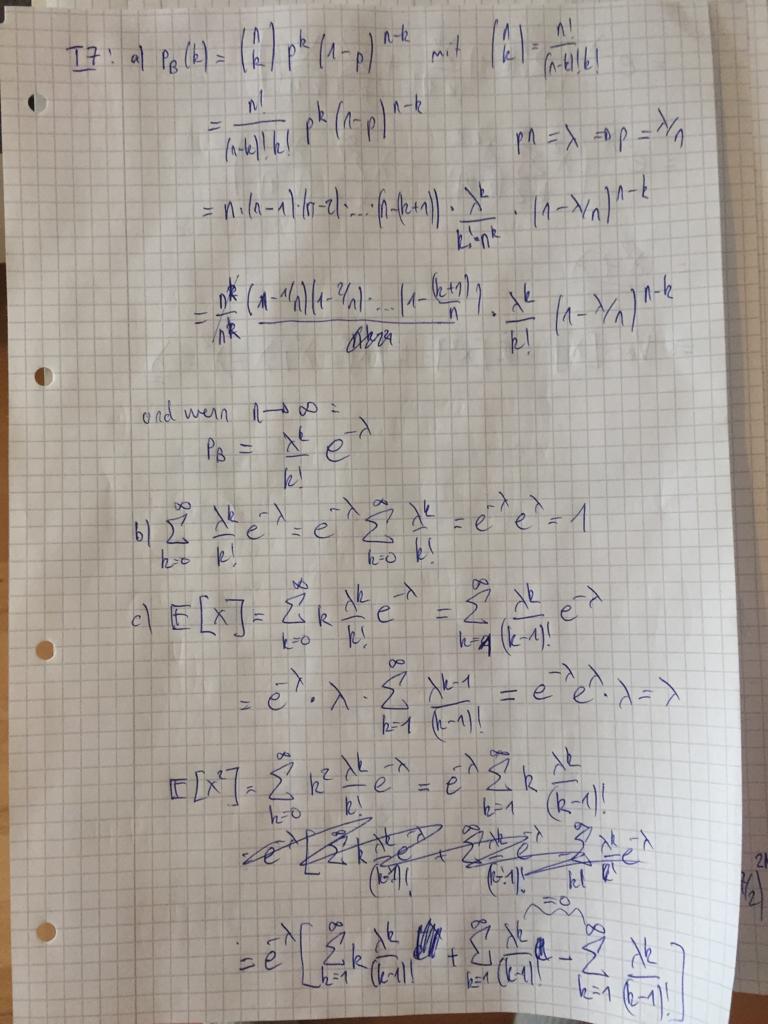 I7: a) P_B(k) = (n k) p^k (1-p)^{n-k} mit (n k) = n!/((n-k)!k!)
= n!/((n-k)!k!) p^k (1-p)^{n-k} pn = λ ⇒ p = λ/n
= n·(n-1)·(n-2)·...·(n-(k+1)) · λ^k/(k!·n^k) · (1-λ/n)^{n-k}
= n^k/n^k (1-1/n)(1-2/n)·...(1-(k+1)/n) · λ^k/k! (1-λ/n)^{n-k}
und wenn n→∞ =
P_B = λ^k/k! e^{-λ}
b) ∑_{k=0}^∞ λ^k/k! e^{-λ} = e^{-λ} ∑_{k=0}^∞ λ^k/k! = e^{-λ} e^λ = 1
c) E[X] = ∑_{k=0}^∞ k λ^k/k! e^{-λ} = ∑_{k=1}^∞ λ^k/(k-1)! e^{-λ}
= e^{-λ} · λ · ∑_{k=1}^∞ λ^{k-1}/(k-1)! = e^{-λ} e^λ · λ = λ
E[X²] = ∑_{k=0}^∞ k² λ^k/k! e^{-λ} = e^{-λ} ∑_{k=1}^∞ k λ^k/(k-1)!
=0
= e^{-λ} [ ∑_{k=1}^∞ k λ^k/(k-1)! + ∑_{k=1}^∞ λ^k/(k-1)! - ∑_{k=1}^∞ λ^k/(k-1)! ]